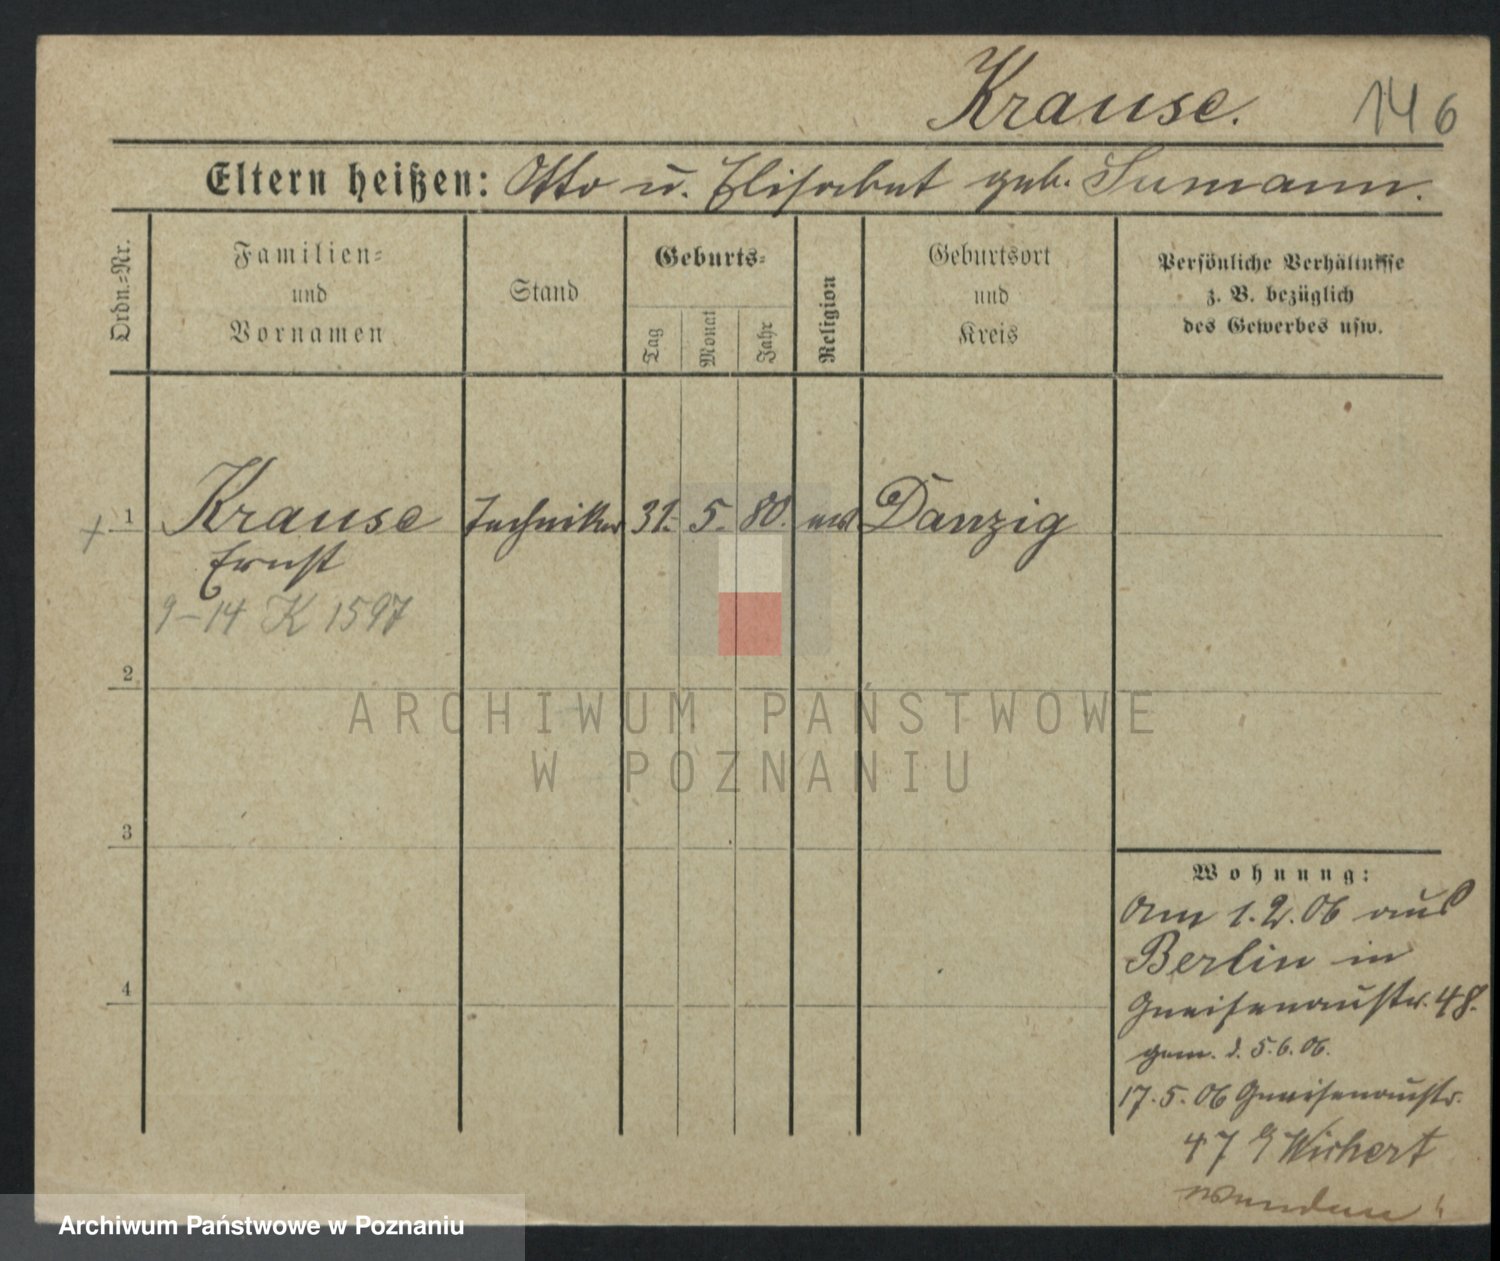 Krause. 146
Eltern heißen: Otto u. Elisabet geb. Sumann.
Ordn.=Nr.
Familien=
und
Vornamen
Stand
Geburts=
Tag
Monat
Jahr
Religion
Geburtsort
und
Kreis
Persönliche Verhältnisse
z. B. bezüglich
des Gewerbes usw.
1 Krause Techniker 31. 5. 80. ev. Danzig
Ernst
9-14 K 1597
2
3
4
Wohnung:
Am 1.2.06 aus
Berlin in
Gneisenaustr. 48.
gem. d. 5.6.06.
17.5.06 Gneisenaustr.
47 Wichert
wenden!
ARCHIWUM PAŃSTWOWE
W POZNANIU
Archiwum Państwowe w Poznaniu